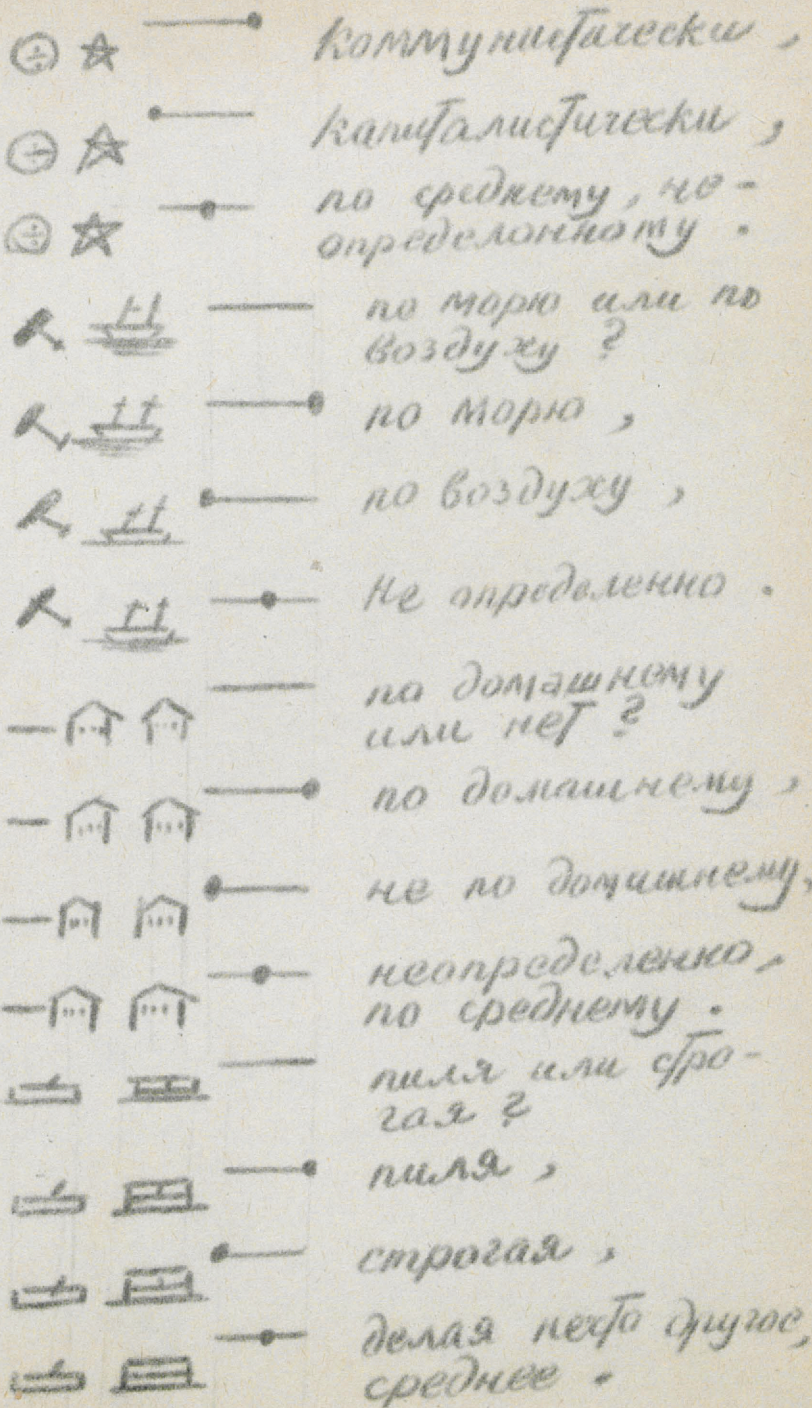 Коммунистически,
Капиталистически,
по среднему, не-
определонному.
по морю или по
воздуху?
по морю,
по воздуху,
Не определенно.
по домашнему
или нет?
по домашнему,
не по домашнему,
неопределенно,
по среднему.
пиля или стро-
гая?
пиля,
строгая,
делая нечто другое,
среднее.